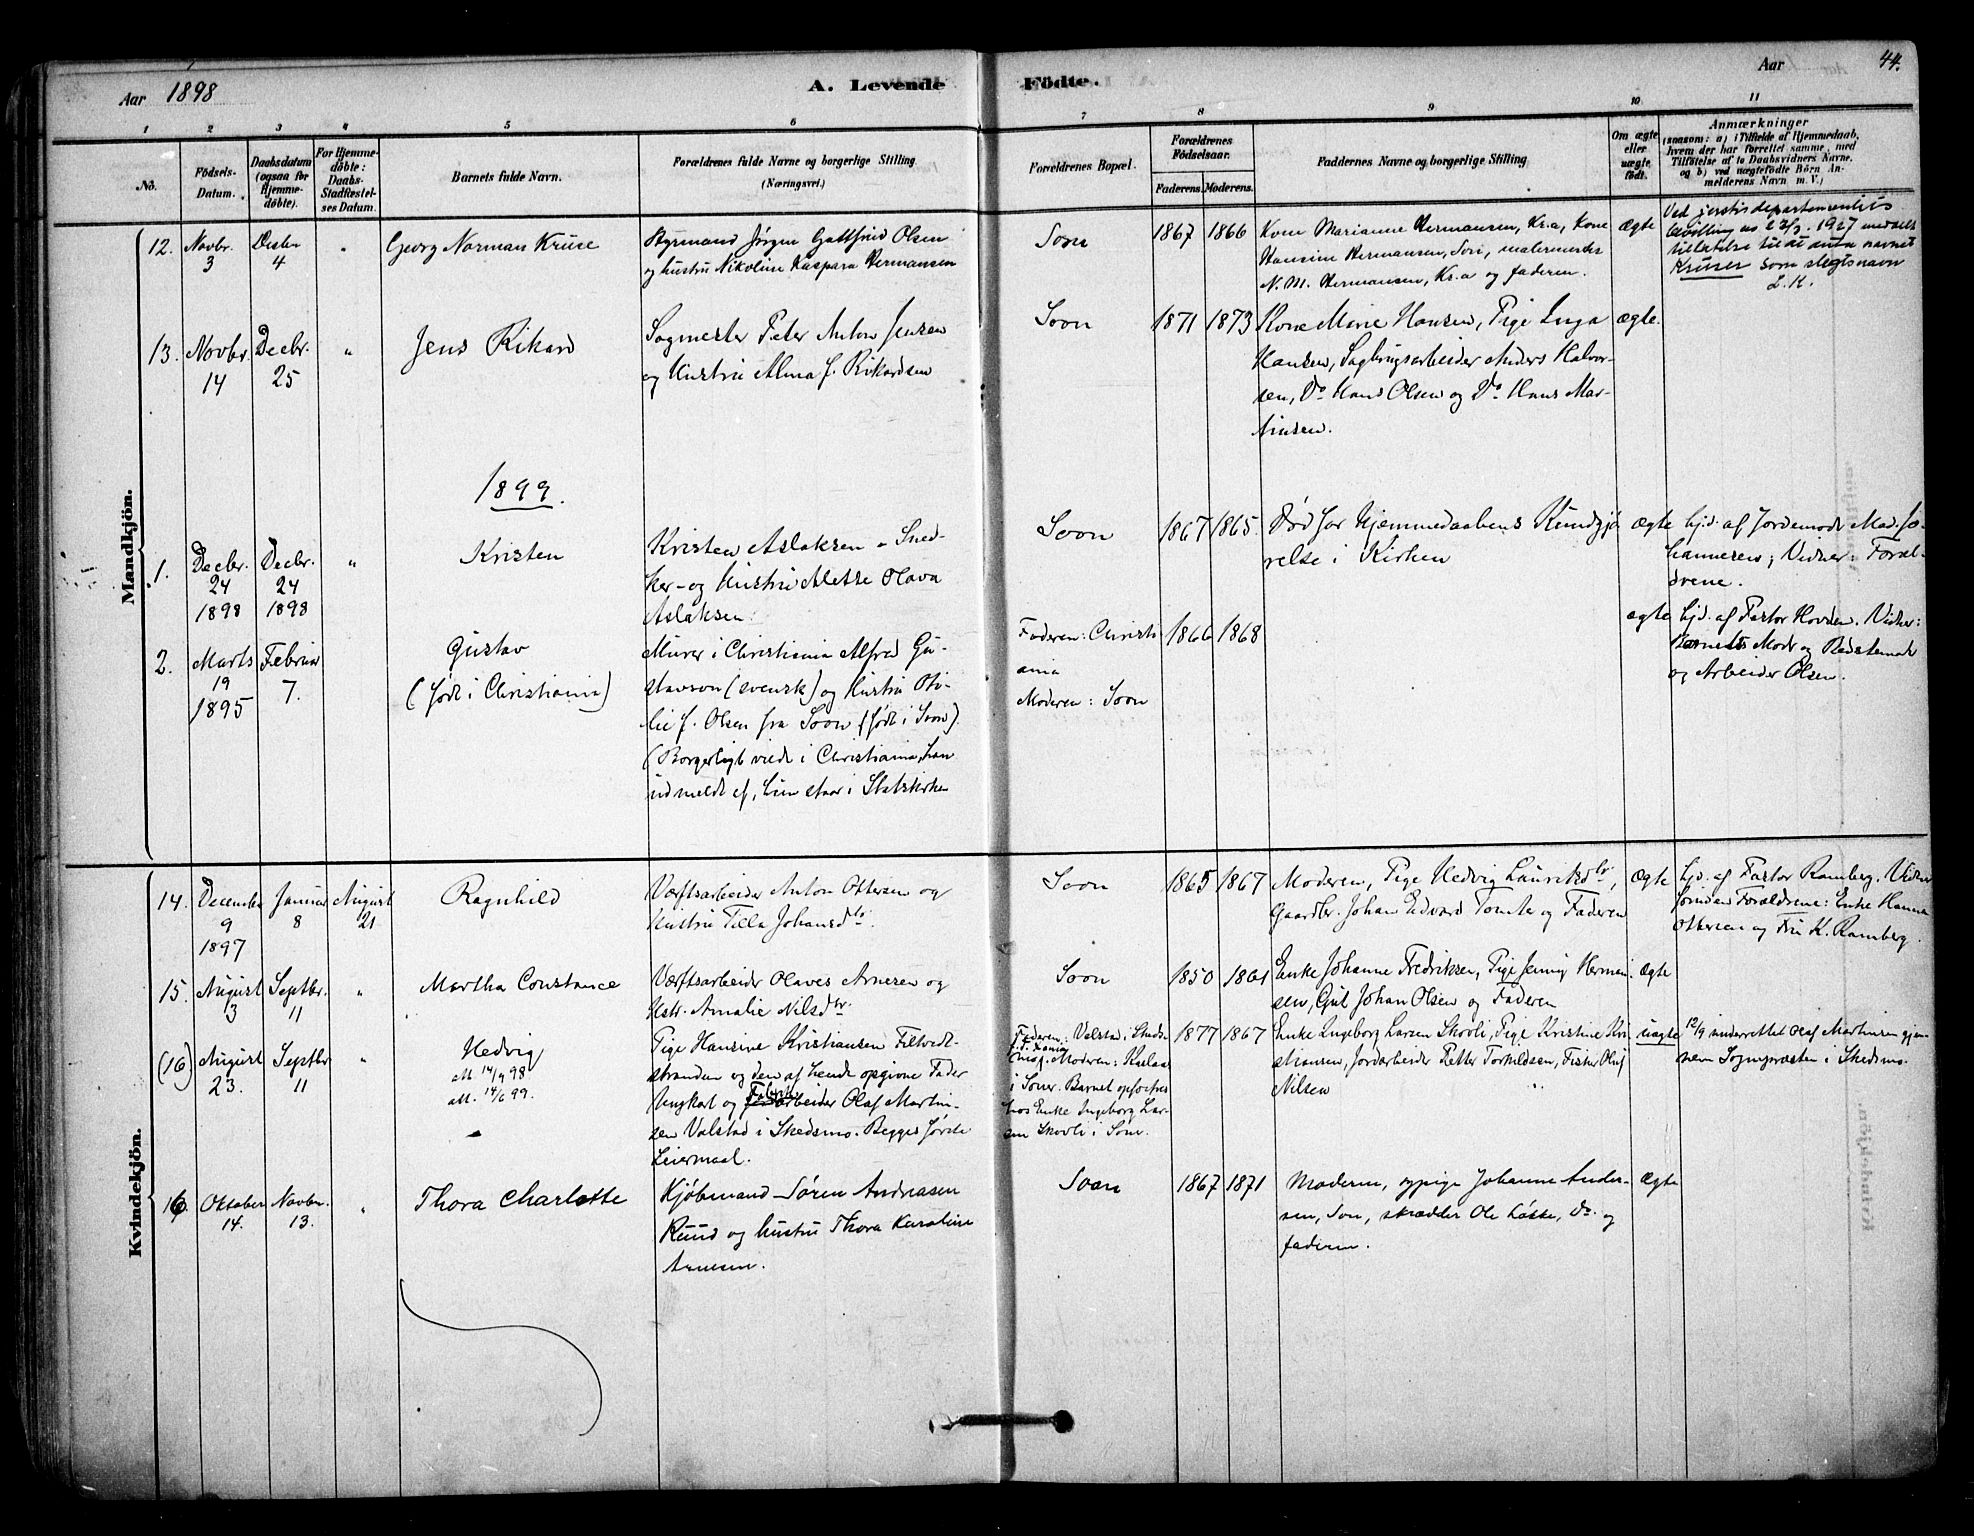 Aar 1898
A. Levende
Födte.
Aar
44.
1 2 3 4 5 6 7 8 9 10 11
No.
Födsels-
Datum.
Daabsdatum
(ogsaa for
Hjemme-
döbte).
For Hjemme-
döbte:
Daabs-
Stadfæstel-
ses Datum.
Barnets fulde Navn.
Forældrenes fulde Navne og borgerlige Stilling
(Næringsvei.)
Forældrenes Bopæl.
Forældrenes
Födselsaar.
Faderens. Moderens.
Faddernes Navne og borgerlige Stilling
Om ægte
eller
uægte
födt.
Anmærkninger
(saasom: a) i Tilfælde af Hjemmedaab,
hvem der har forrettet samme, med
Tilföielse af to Daabsvidners Navne,
og b) ved uægtefödte Börn An-
melderens Navn m. V.)
Mandkjön.
12. Novbr. 3
Desbr 4
"
Georg Norman Kruse
Styrmand Jörgen Gottfried Olsen
og hustru Nikoline Kaspara Hermansen
Soon
1867 1866
Kone Marianne Hermansen, Kr.a, Kone
Hansine Hermansen, Son, malermester
N. M. Hermansen, Kr.a og faderen.
ægte
Ved justisdepartementets
bevilling av 22/3. 1927 meddelt
tilladelse til at anta navnet
Kruser som slegtsnavn
L. K.
13. Novbr. 14
Decbr. 25
"
Jens Rikard
Sagmester Peter Anton Jensen
og Hustru Alma f. Rikardsen
Soon
1871 1873
Kone Marie Hansen, Pige Inga
Hansen, Sagbrugsarbeider Anders Halvor-
sen, Do Hans Olsen og Do Hans Mar-
tinsen.
ægte.
1899.
1. Decbr. 24 1898
Decbr. 24 1898
"
Kristen
Kristen Aslaksen - Sned-
ker - og Hustru Mette Olava
Aslaksen.
Soon
1867 1865
Död för Hjemmedaabens Kundgjö-
relse i Kirken
ægte
hjd. af Jordemoder Mad. Jo-
hannesen; Vidner: Foræl-
drene.
2. Marts 19 1895
Februar 7.
Gustav
(född i Christiania)
Murer i Christiania Alfred Gu-
stavson (svensk) og Hustru Oti-
lie f. Olsen fra Soon (född i Soon).
(Borgerligt viede i Christiania, han
udmeldt af, hun staar i Statskirken
Faderen: Christi-
ania
Moderen: Soon
1866 1868
ægte
hjd. af Pastor Hovden. Vidner:
Barnets Moder og Bedstemoder
og Arbeider Olsen.
Kvindekjön.
14. December 9 1897
Januar 8
August 21
Ragnhild
Værftsarbeider Anton Ottersen og
Hustru Tilla Johansdtr.
Soon
1865 1867
Moderen, Pige Hedvig Lauritsdtr,
Gaardbr. Johan Edvard Tomter og Faderen
ægte
hjd. af Pastor Ramberg. Vidner
foruden Forældrene: Enke Hanna
Ottersen og Fru K. Ramberg.
15. August 3
Septbr. 11
"
Martha Constance
Værftsarbeider Olaves Arnesen og
Hstr. Amalie Nilsdtr.
Soon
1850 1861
Enke Johanne Fredriksen, Pige Jenny Herman-
sen, Gut Johan Olsen og Faderen
ægte
(16) August 23.
Septbr 11
"
Hedvig
M 14/9 98
M. 14/6 99.
Pige Hansine Kristiansen Filtvedt-
stranden og den af hende opgivne Fader
Ungkarl og Fabrikarbeider Olaf Martin-
sen Valstad i Skedsmo. Begges förste
Leiermaal.
Faderen: Valstad i Skeds-
mo. Moderen:
i Soner. Barnet opfostres
hos Enke Ingeborg Lar-
sen Skovli i Soner.
1877 1867
Enke Ingeborg Larsen Skovli, Pige Kristine Kri-
stiansen, Jordarbeider Petter Torkildsen, Fisker Oluf
Nilsen
uægte
12/9 underrettet Olaf Martinsen gjen-
nem Sognepræsten i Skedsmo.
16. Oktober 14.
Novbr. 13.
"
Thora Charlotte
Kjöbmand Sören Andreasen
Ruud og hustru Thora Karoline
Arnesen.
Soon
1867 1871
Moderen, ugpige Johanne Ander-
sen, Son, skrædder Ole Lökke, Do. og
faderen.
ægte